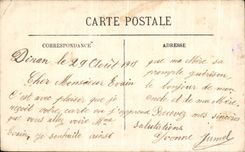 CARTE POSTALE
CORRESPONDANCE
ADRESSE
Dinan le 29 Août 1918
Cher Monsieur Evain
C'est avec plaisir que j'ai
reçoit votre carte où j'apprend
que vous allez voir Mme
Evain, je souhaite ainsi
que ma Mère sa
prompte guérison
le bonjour de mon
oncle et de ma Mère
Recevez mes sincères
salutations
Yvonne